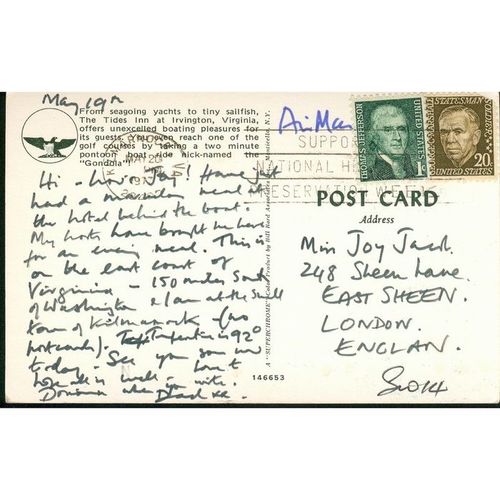 May 19th
From seagoing yachts to tiny sailfish,
The Tides Inn at Irvington, Virginia,
offers unexcelled boating pleasures for
its guests. You even reach one of the
golf courses by taking a two minute
pontoon boat ride nick-named the
"Gondola".
Hi - love Joy! Have just
had a meal in
the hotel behind the boat.
My hosts have bought me here
for an evening meal. This is
on the east coast of
Virginia - 150 miles South
of Washington & I am at the small
town of Kilmarnock - (no
postcards). Temperature is 92°
today - See you soon
hope all is well - love to
Dominic when you write.
Dad xx
A "SUPERCHROME" Color Product by Bill Bard Associates, Monticello, N.Y.
146653
Air Mail
MAY 20
SUPPORT
NATIONAL
PRESERVATION WEEK
THOMAS JEFFERSON
1c
UNITED STATES
STATESMAN
SOLDIER
20c
UNITED STATES
POST CARD
Address
Miss Joy Jacob.
248 Sheen Lane.
EAST SHEEN.
LONDON.
ENGLAN.
SW14